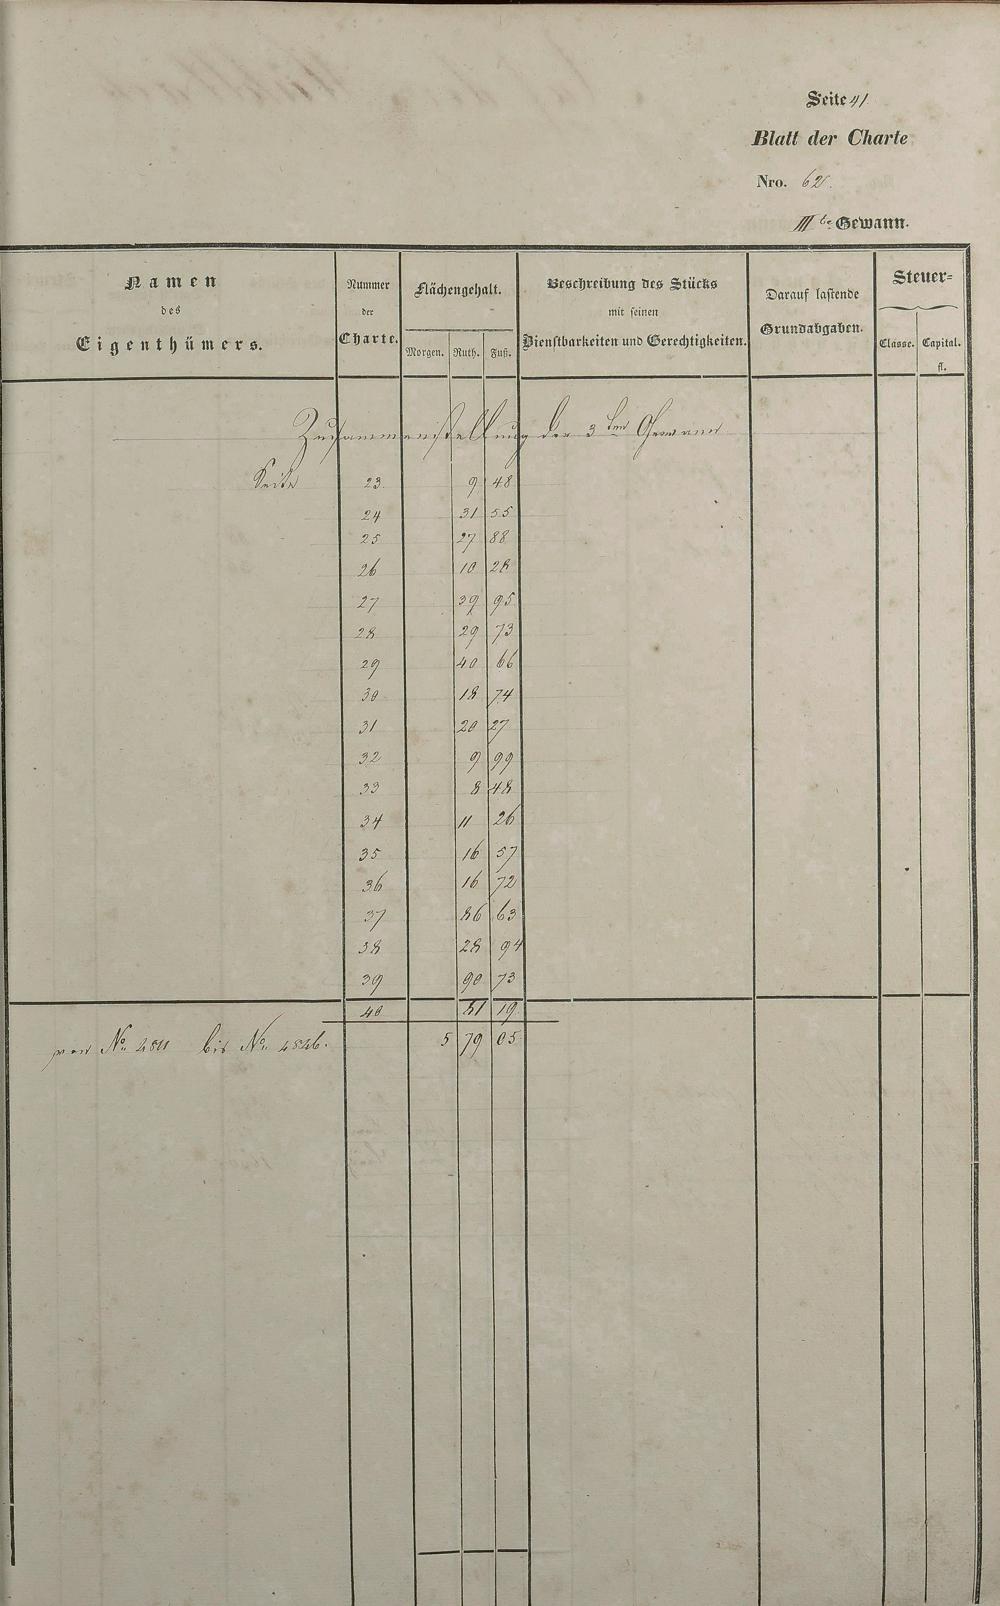 Seite 41
Blatt der Charte
Nro. 62.
III te Gewann.
Namen des Eigenthümers.
Nummer der Charte.
Flächengehalt.
Morgen. Ruth. Fuß.
Beschreibung des Stücks mit seinen Dienstbarkeiten und Gerechtigkeiten.
Darauf lastende Grundabgaben.
Steuer=
Classe. Capital.
fl.
Zusammenstellung der 3 ten Gewann
Seite 23. 9 48
24 31 55
25 27 88
26 10 28
27 39 95
28 29 73
29 40 66
30 18 74
31 20 27
32 9 99
33 8 48
34 11 26
35 16 57
36 16 72
37 86 63
38 28 94
39 90 73
40 81 19
von No bis No 5 79 05